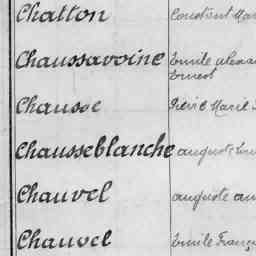 Chatton Constant Mar
Chaussavoine Emile alexa
Ernest
Chausse René Marie
Chausseblanche auguste
Chauvel auguste
Chauvel Emile Franç